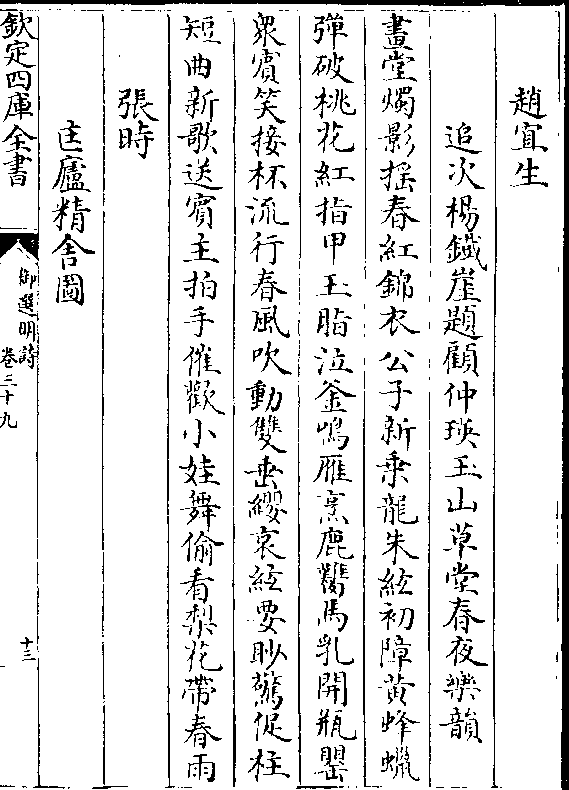 趙宜生
追次楊鐵崖題顧仲瑛玉山草堂春夜樂韻
畫堂燭影揺春紅錦衣公子新乗龍朱絃初障黄蜂蠟
彈破桃花紅指甲玉脂泣釜鳴雁烹鹿臡馬乳開瓶罌
衆賓笑接杯流行春風吹動雙垂纓哀絃要眇驚促柱
短曲新歌送賓主拍手催歡小娃舞偷看梨花帶春雨
張時
匡廬精舍圖
欽定四庫全書
御選明詩
卷三十九
十三